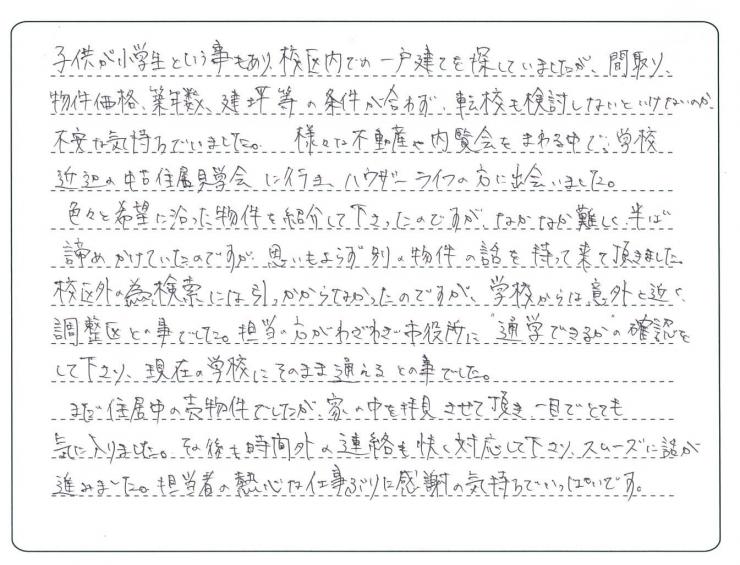 子供が小学生という事もあり、校区内での一戸建てを探していましたが、間取り、
物件価格、築年数、建坪等の条件が合わず、転校も検討しないといけないのか、
不安な気持ちでいました。 様々な不動産や内覧会をまわる中で、学校
近辺の中古住居見学会に行き、ハウザーライフの方に出会いました。
色々と希望に沿った物件を紹介して下さったのですが、なかなか難しく、半ば
諦めかけていたのですが、思いもよらず別の物件の話を持って来て頂きました。
校区外の為検索には引っかからなかったのですが、学校からは意外と近く、
調整区との事でした。担当の方がわざわざ市役所に"通学できるか"の確認を
して下さり、現在の学校にそのまま通えるとの事でした。
まだ住居中の売物件でしたが、家の中を拝見させて頂き一目でとても
気に入りました。その後も時間外の連絡も快く対応して下さり、スムーズに話が
進みました。担当者の熱心な仕事ぶりに感謝の気持ちでいっぱいです。